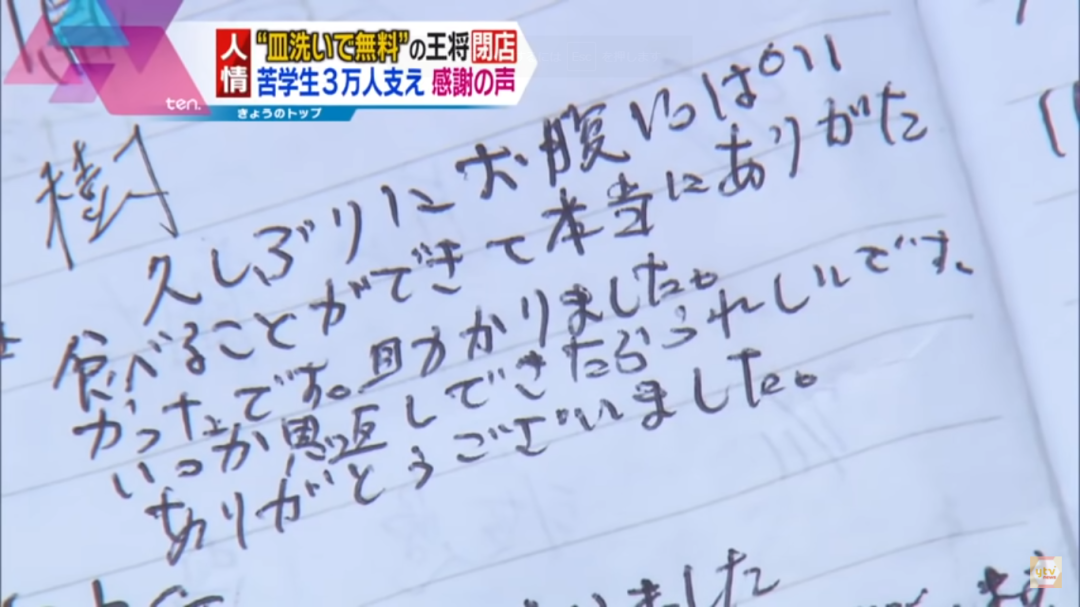 人情
“皿洗いで無料”の王将閉店
苦学生3万人支え 感謝の声
ten.
きょうのトップ
樹
久しぶりにお腹いっぱい
食べることができて本当にありがた
かったです。助かりました。
いつか恩返しできたらうれしいです。
ありがとうございました。
ました
ytv